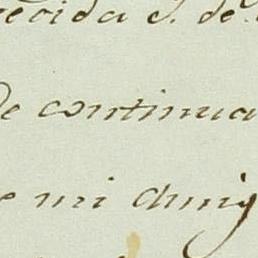 recida S. de
de continua
e mi amig